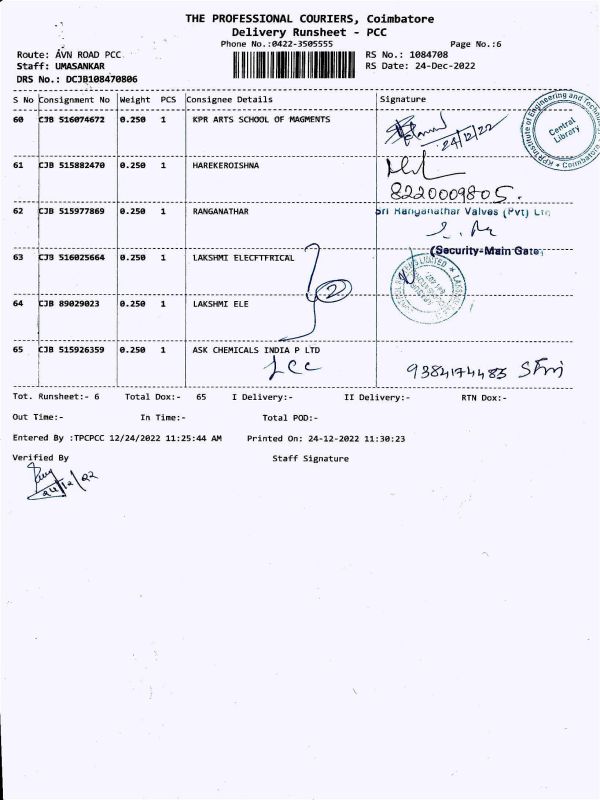 THE PROFESSIONAL COURIERS, Coimbatore
Delivery Runsheet - PCC
Phone No.:0422-3505555 Page No.:6
Route: AVN ROAD PCC RS No.: 1084708
Staff: UMASANKAR RS Date: 24-Dec-2022
DRS No.: DCJB108470806
S No Consignment No Weight PCS Consignee Details Signature
60 CJB 516074672 0.250 1 KPR ARTS SCHOOL OF MAGMENTS
24/12/22
KPR Institute of Engineering and Coimbatore
Central Library
61 CJB 515882470 0.250 1 HAREKEROISHNA
8220009805.
62 CJB 515977869 0.250 1 RANGANATHAR Sri Ranganathar Valves (Pvt) Ltd
(Security-Main Gate)
63 CJB 516025664 0.250 1 LAKSHMI ELECFTFRICAL
2
64 CJB 89029023 0.250 1 LAKSHMI ELE
65 CJB 515926359 0.250 1 ASK CHEMICALS INDIA P LTD
Lcc 9384174483
Tot. Runsheet:- 6 Total Dox:- 65 I Delivery:- II Delivery:- RTN Dox:-
Out Time:- In Time:- Total POD:-
Entered By :TPCPCC 12/24/2022 11:25:44 AM Printed On: 24-12-2022 11:30:23
Verified By Staff Signature
24/12/22